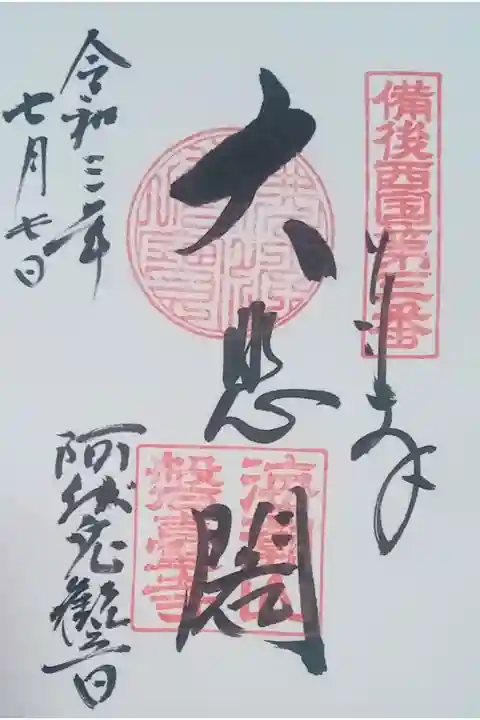 備後西国第三番
奉拝
大悲閣
海潮山
磐臺寺
令和三年
七月七日
阿伏兎観音